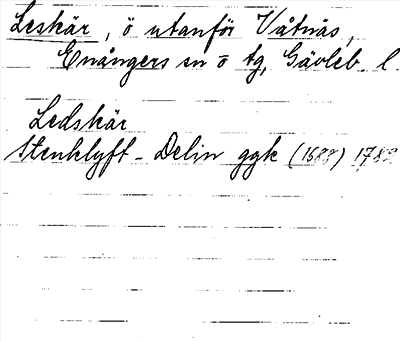 Leskär, ö utanför Våtnäs,
Enångers sn o tg, Gävleb. l.
Ledskär
Stenklyft - Delin ggk (1688) 1789